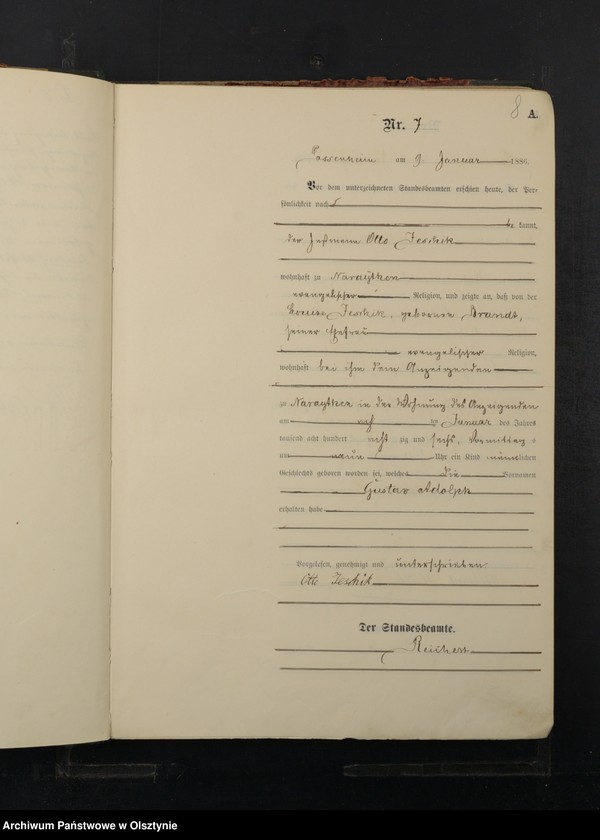 8
A.
Nr. 7
Passenheim am 9. Januar 1886.
Vor dem unterzeichneten Standesbeamten erschien heute, der Per-
sönlichkeit nach
be kannt,
der Otto Jeschik
wohnhaft zu Narajthen
evangelischer Religion, und zeigte an, daß von der
Louise Jeschik, geborene Brandt,
seiner Ehefrau
evangelischer Religion,
wohnhaft bei ihm dem Anzeigenden
zu Narajthen in der Wohnung des Anzeigenden
am Januar des Jahres
tausend acht hundert acht zig und sechs, Vormittags
um neun Uhr ein Kind männlichen
Geschlechts geboren worden sei, welches die Vornamen
Gustav Adolph
erhalten habe
Vorgelesen, genehmigt und unterschrieben
Otto Jeschik
Der Standesbeamte.
Reichert
Archiwum Państwowe w Olsztynie